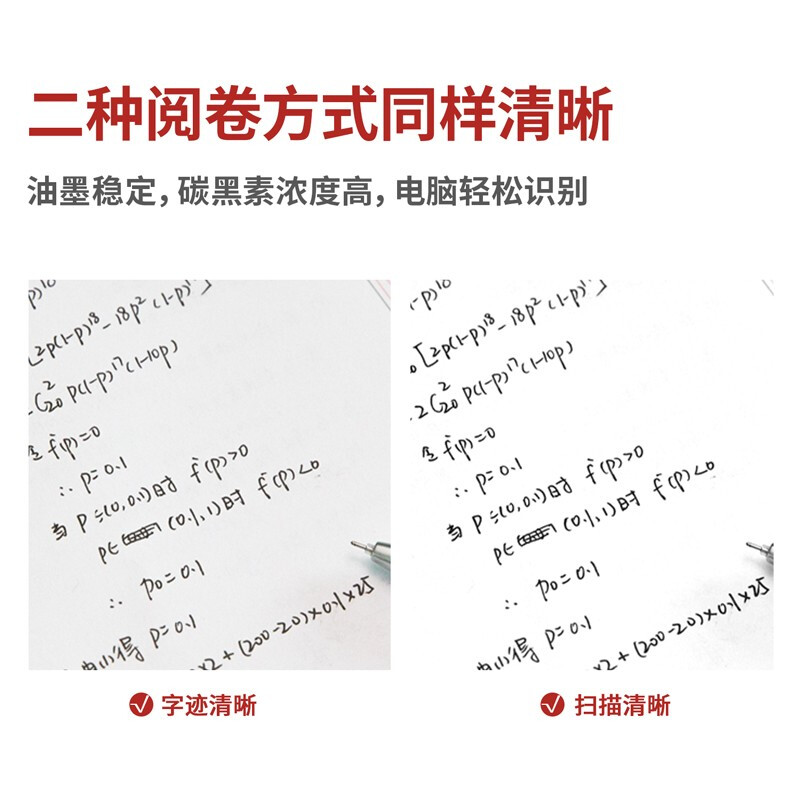 二种阅卷方式同样清晰
油墨稳定，碳黑素浓度高，电脑轻松识别
[2p(1-p)¹⁸-18p²(1-p)¹⁷]
C²₂₀ p(1-p)¹⁷(1-10p)
f'(p)=0
∴ p=0.1
当 p∈(0,0.1)时 f'(p)>0
p∈ (0.1,1)时 f'(p)<0
∴ p₀=0.1
得 p=0.1
×2+(200-20)×0.1×25
-p)¹⁸
[2p(1-p)¹⁸-18p²(1-p)¹⁷]
2C²₂₀ p(1-p)¹⁷(1-10p)
f'(p)=0
∴ p=0.1
当 p∈(0,0.1)时 f'(p)>0
p∈ (0.1,1)时 f'(p)<0
∴ p₀=0.1
得 p=0.1
×2+(200-20)×0.1×25
字迹清晰
扫描清晰